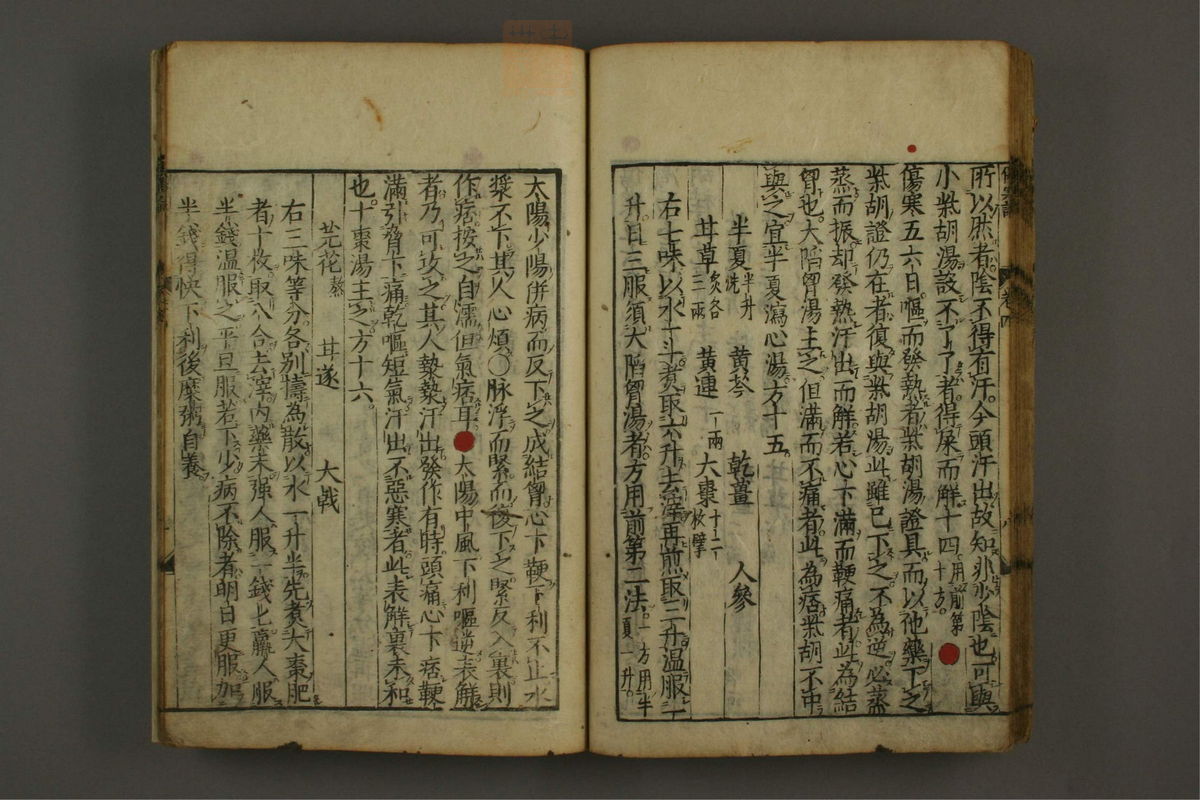 所以然者陰不得有汗今頭汗出故知非少陰也可與
小柴胡湯設不了了者得屎而解十四 用前第十方
傷寒五六日嘔而發熱者柴胡湯證具而以他藥下之
柴胡證仍在者復與柴胡湯此雖已下之不為逆必蒸
蒸而振却發熱汗出而解若心下滿而鞕痛者此為結
胷也大陷胷湯主之但滿而不痛者此為痞柴胡不中
與之宜半夏瀉心湯方十五
半夏 半升洗 黄芩 乾薑 人參
甘草 炙各三兩 黄連 一兩 大棗 十二枚擘
右七味以水一斗煮取六升去滓再煎取三升温服一
升日三服須大陷胷湯者方用前第二法 一方用半夏一升
太陽少陽併病而反下之成結胷心下鞕下利不止水
漿不下其人心煩○脉浮而緊而復下之緊反入裏則
作痞按之自濡但氣痞耳●太陽中風下利嘔逆表解
者乃可攻之其人漐漐汗出發作有時頭痛心下痞鞕
滿引脅下痛乾嘔短氣汗出不惡寒者此表解裏未和
也十棗湯主之方十六
芫花 熬 甘遂 大戟
右三味等分各別擣為散以水一升半先煮大棗肥
者十枚取八合去滓内藥末强人服一錢匕羸人服
半錢温服之平旦服若下少病不除者明日更服加
半錢得快下利後糜粥自養